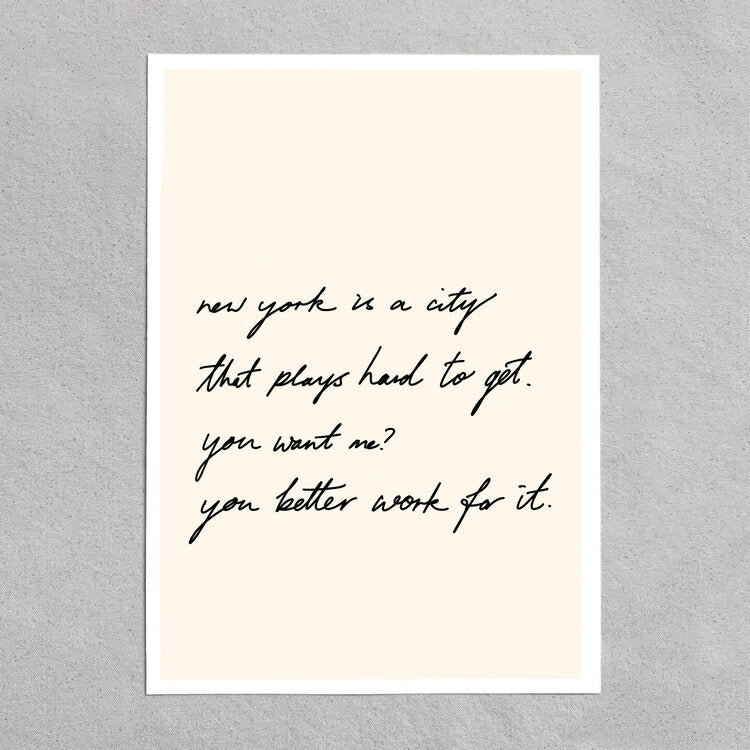 new york is a city
that plays hard to get.
you want me?
you better work for it.